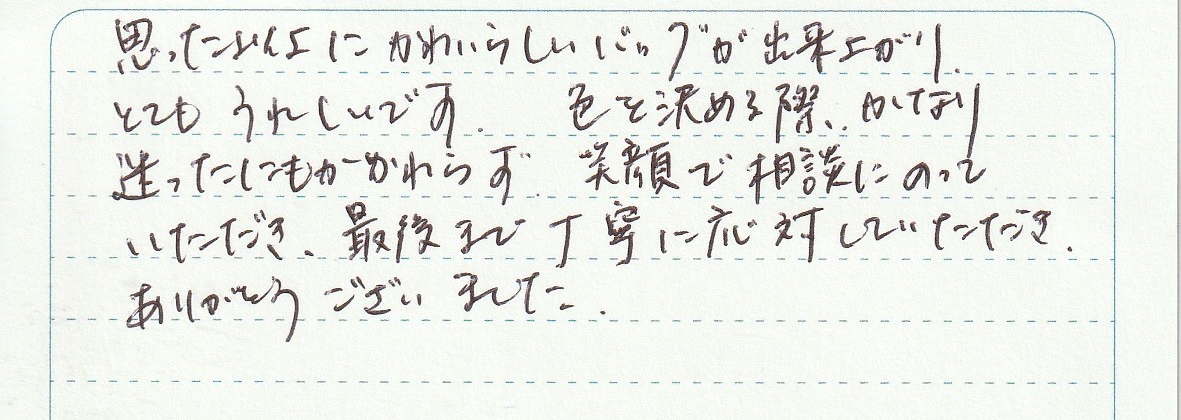 思った以上にかわいらしいバッグが出来上がり、
とてもうれしいです。 色を決める際、かなり
迷ったにもかかわらず、笑顔で相談にのって
いただき、最後まで丁寧に応対していただき、
ありがとうございました。